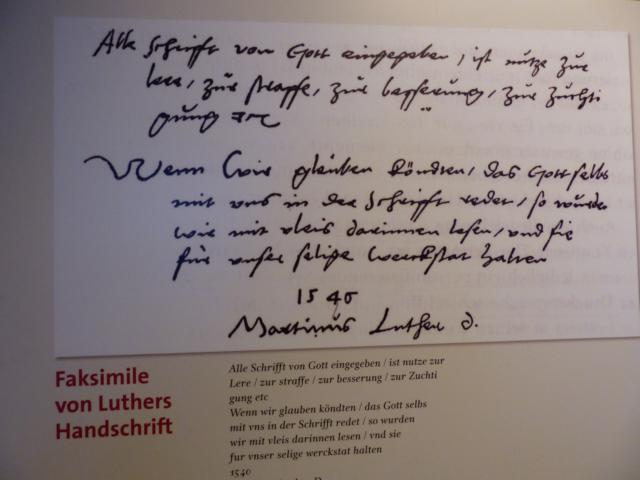 Alle Schrifft von Gott eingegeben / ist nutze zur
lere / zur straffe / zur besserung / zur Zuchti
gung etc
Wenn wir glauben köndten / das Gott selbs
mit vns in der Schrifft redet / so wurden
wir mit vleis darinnen lesen / vnd sie
für vnser selige werckstat halten
1540
Martinus Luther d.
Faksimile
von Luthers
Handschrift
Alle Schrifft von Gott eingegeben / ist nutze zur
Lere / zur straffe / zur besserung / zur Zuchti
gung etc
Wenn wir glauben köndten / das Gott selbs
mit vns in der Schrifft redet / so wurden
wir mit vleis darinnen lesen / vnd sie
fur vnser selige werckstat halten
1540